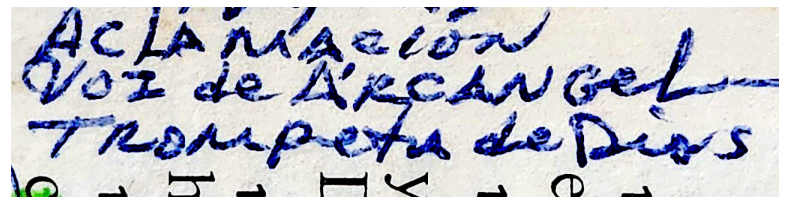 Aclamación
Voz de ARCANGel
Trompeta de Dios